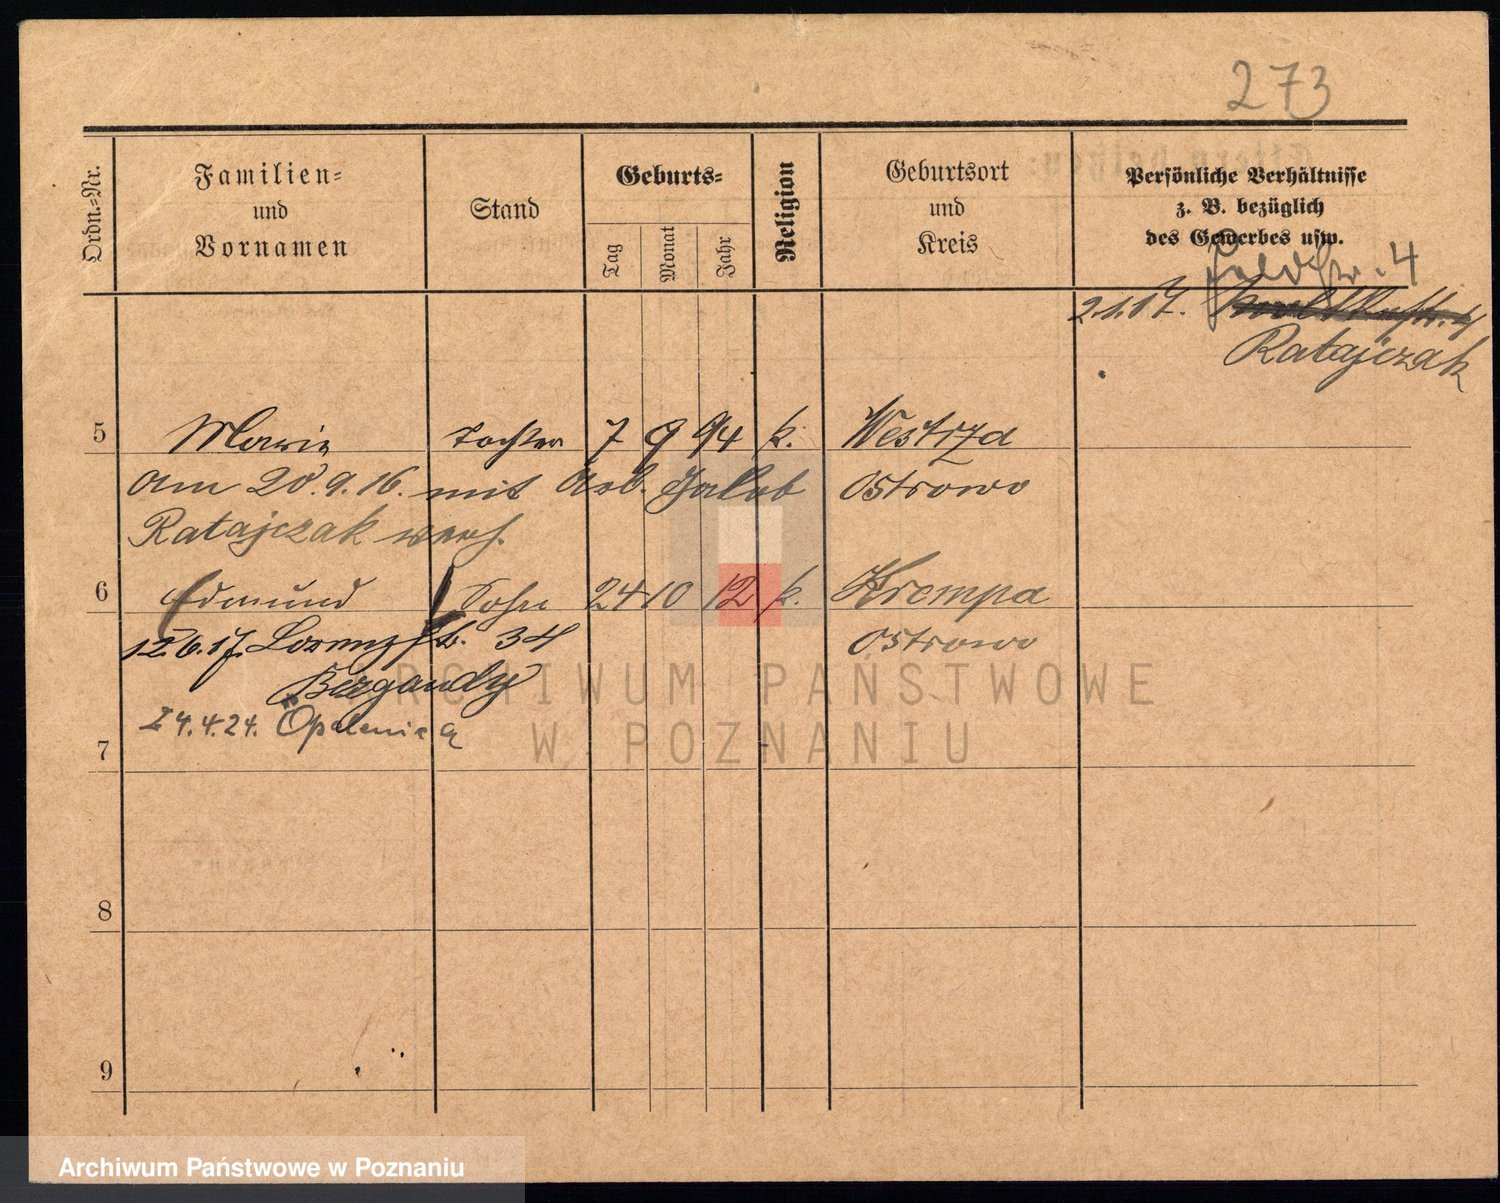 273
Ordn.=Nr.
Familien=
und
Vornamen
Stand
Geburts=
Tag
Monat
Jahr
Religion
Geburtsort
und
Kreis
Persönliche Verhältnisse
z. B. bezüglich
des Gewerbes usw.
2.1.17. Feldstr. 4
Ratajczak
5 Marie Tochter 7 9 94 k. Westrza
Am 20.9.16. mit Arb. Jakob Ostrowo
Ratajczak verh.
6 Edmund Sohn 24 10 12 k. Krempa
12.6.17. Lorenzstr. 34 Ostrowo
Bergandy
24.4.24. Opalenica
7
8
9
ARCHIWUM PAŃSTWOWE
W POZNANIU
Archiwum Państwowe w Poznaniu